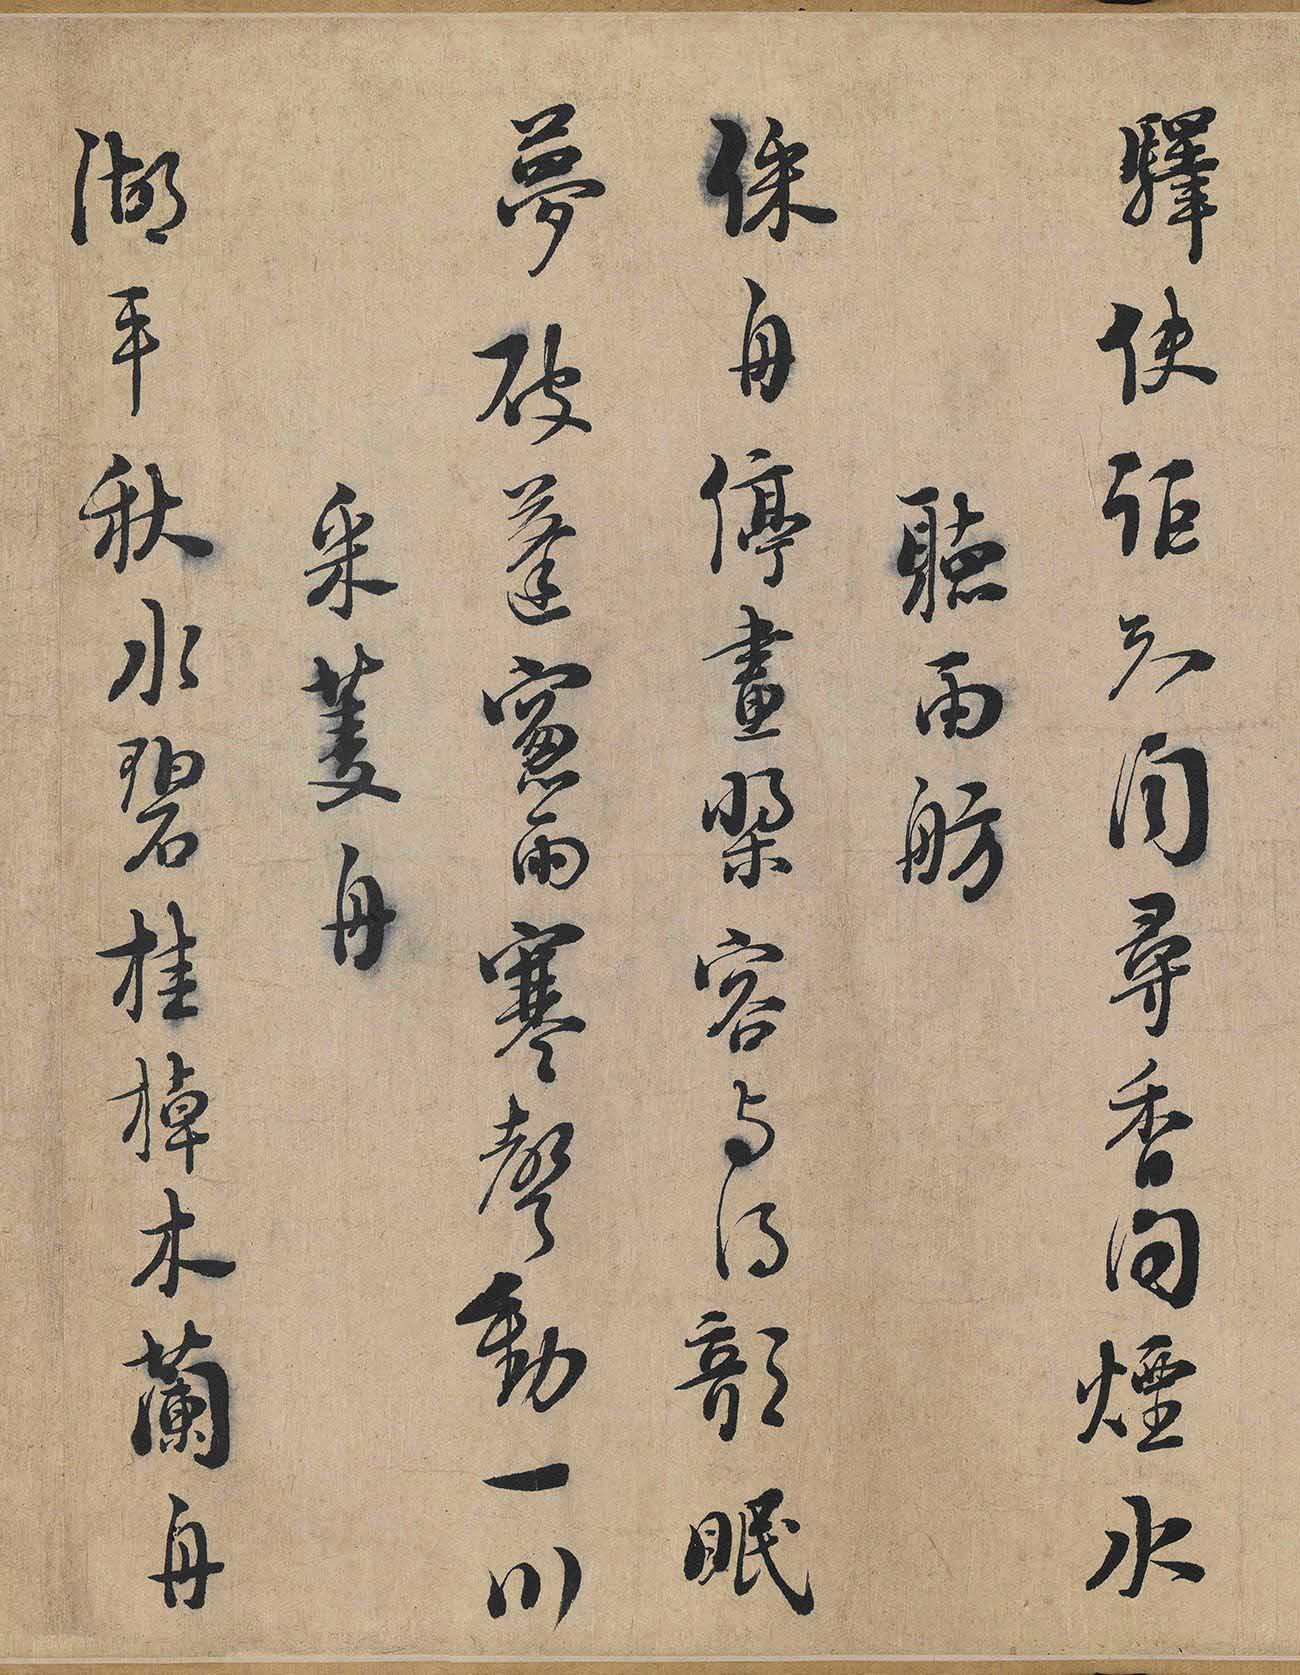 驛使詎知聞尋香問煙水
聽雨舫
綵舟停畫槳容与得欹眠
夢破蓬窻雨寒聲動一川
采菱舟
湖平秋水碧桂棹木蘭舟